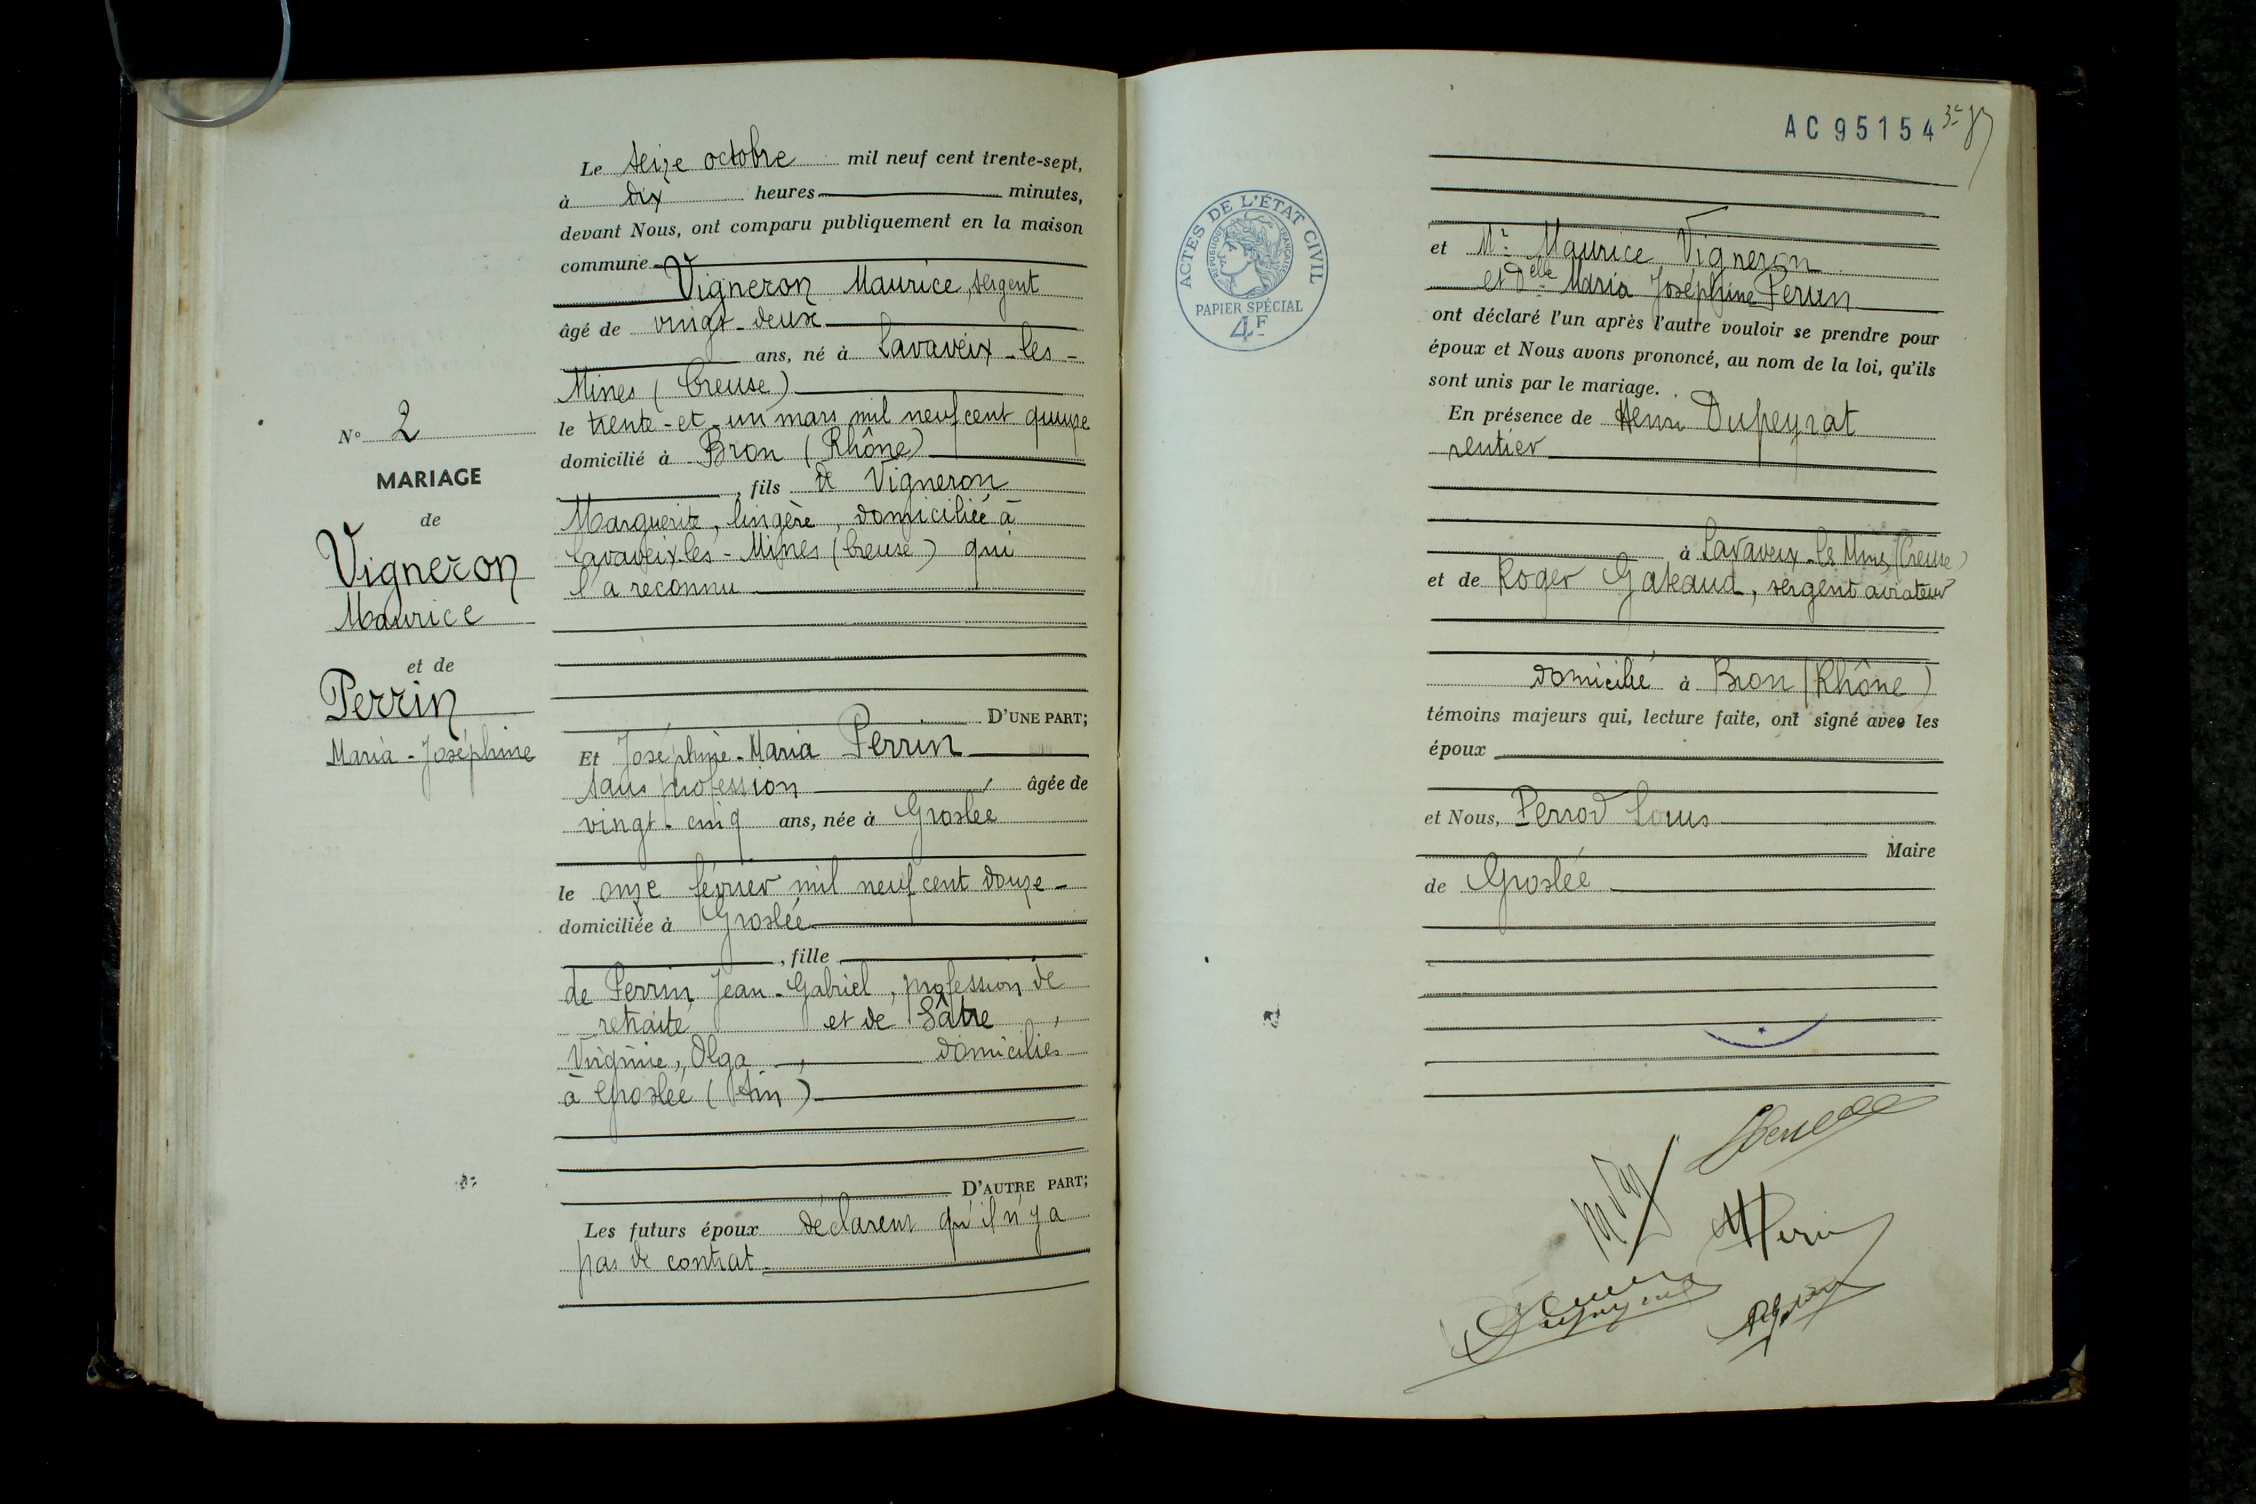 Le seize octobre mil neuf cent trente-sept,
à dix heures minutes,
devant Nous, ont comparu publiquement en la maison
commune
Vigneron Maurice, sergent
âgé de vingt-deux
ans, né à Lavaveix-les-
Mines (Creuse)
le trente-et-un mars mil neuf cent quinze
domicilié à Bron (Rhône)
, fils de Vigneron
Marguerite, lingère, domiciliée à
Lavaveix-les-Mines (Creuse) qui
l'a reconnu
D'UNE PART;
Et Joséphine-Maria Perrin
sans profession âgée de
vingt-cinq ans, née à Groslée
le onze février mil neuf cent douze-
domiciliée à Groslée
, fille
de Perrin Jean-Gabriel, profession de
retraité et de Sâtre,
Virginie, Olga, domiciliés
à Groslée (Ain)
D'AUTRE PART;
Les futurs époux déclarent qu'il n'y a
pas de contrat
N° 2
MARIAGE
de
Vigneron
Maurice
et de
Perrin
Maria-Joséphine
AC 95154
ACTES DE L'ÉTAT CIVIL
RÉPUBLIQUE FRANÇAISE
PAPIER SPÉCIAL
4F
et Mr Maurice Vigneron
et Delle Maria Joséphine Perrin
ont déclaré l'un après l'autre vouloir se prendre pour
époux et Nous avons prononcé, au nom de la loi, qu'ils
sont unis par le mariage.
En présence de Henri Dupeyrat
rentier
à Lavaveix-les Mines (Creuse)
et de Roger Gateaud, sergent aviateur
domicilié à Bron (Rhône)
témoins majeurs qui, lecture faite, ont signé avec les
époux
et Nous, Perrod Louis
Maire
de Groslée